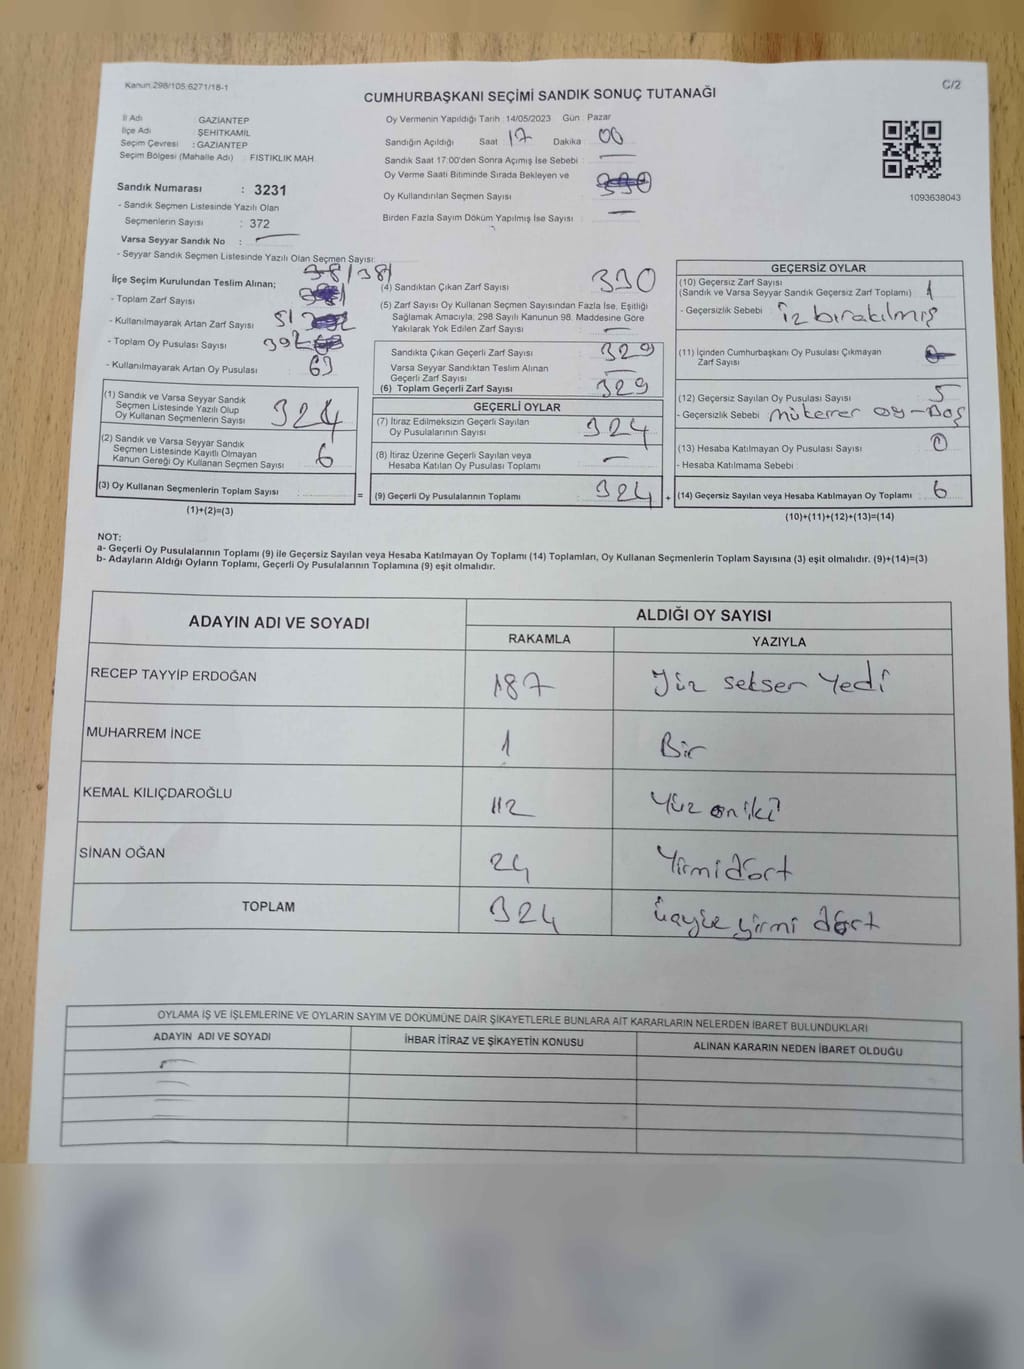 Kanun:298/105;6271/18-1
C/2
CUMHURBAŞKANI SEÇİMİ SANDIK SONUÇ TUTANAĞI
İl Adı GAZİANTEP
İlçe Adı ŞEHİTKAMİL
Seçim Çevresi : GAZİANTEP
Seçim Bölgesi (Mahalle Adı) FISTIKLIK MAH.
Sandık Numarası : 3231
- Sandık Seçmen Listesinde Yazılı Olan
Seçmenlerin Sayısı : 372
Varsa Seyyar Sandık No : —
- Seyyar Sandık Seçmen Listesinde Yazılı Olan Seçmen Sayısı:
Oy Vermenin Yapıldığı Tarih : 14/05/2023 Gün : Pazar
Sandığın Açıldığı Saat 17 Dakika 00
Sandık Saat 17:00'den Sonra Açımış İse Sebebi : —
Oy Verme Saati Bitiminde Sırada Bekleyen ve
Oy Kullandırılan Seçmen Sayısı
Birden Fazla Sayım Döküm Yapılmış İse Sayısı : —
1093638043
İlçe Seçim Kurulundan Teslim Alınan;
- Toplam Zarf Sayısı 381
- Kullanılmayarak Artan Zarf Sayısı 51
- Toplam Oy Pusulası Sayısı 392
- Kullanılmayarak Artan Oy Pusulası 63
(1) Sandık ve Varsa Seyyar Sandık
Seçmen Listesinde Yazılı Olup
Oy Kullanan Seçmenlerin Sayısı 324
(2) Sandık ve Varsa Seyyar Sandık
Seçmen Listesinde Kayıtlı Olmayan
Kanun Gereği Oy Kullanan Seçmen Sayısı 6
(3) Oy Kullanan Seçmenlerin Toplam Sayısı =
(1)+(2)=(3)
(4) Sandıktan Çıkan Zarf Sayısı 330
(5) Zarf Sayısı Oy Kullanan Seçmen Sayısından Fazla İse, Eşitliği
Sağlamak Amacıyla, 298 Sayılı Kanunun 98. Maddesine Göre
Yakılarak Yok Edilen Zarf Sayısı —
Sandıkta Çıkan Geçerli Zarf Sayısı 329
Varsa Seyyar Sandıktan Teslim Alınan
Geçerli Zarf Sayısı —
(6) Toplam Geçerli Zarf Sayısı 329
GEÇERLİ OYLAR
(7) İtiraz Edilmeksizin Geçerli Sayılan
Oy Pusulalarının Sayısı 324
(8) İtiraz Üzerine Geçerli Sayılan veya
Hesaba Katılan Oy Pusulası Toplamı —
(9) Geçerli Oy Pusulalarının Toplamı 324 +
GEÇERSİZ OYLAR
(10) Geçersiz Zarf Sayısı
(Sandık ve Varsa Seyyar Sandık Geçersiz Zarf Toplamı) 1
- Geçersizlik Sebebi : iz bırakılmış
(11) İçinden Cumhurbaşkanı Oy Pusulası Çıkmayan
Zarf Sayısı
(12) Geçersiz Sayılan Oy Pusulası Sayısı 5
- Geçersizlik Sebebi : mükerrer oy-Boş
(13) Hesaba Katılmayan Oy Pusulası Sayısı 0
- Hesaba Katılmama Sebebi
(14) Geçersiz Sayılan veya Hesaba Katılmayan Oy Toplamı 6
(10)+(11)+(12)+(13)=(14)
NOT:
a- Geçerli Oy Pusulalarının Toplamı (9) ile Geçersiz Sayılan veya Hesaba Katılmayan Oy Toplamı (14) Toplamları, Oy Kullanan Seçmenlerin Toplam Sayısına (3) eşit olmalıdır. (9)+(14)=(3)
b- Adayların Aldığı Oyların Toplamı, Geçerli Oy Pusulalarının Toplamına (9) eşit olmalıdır.
ADAYIN ADI VE SOYADI ALDIĞI OY SAYISI
RAKAMLA YAZIYLA
RECEP TAYYİP ERDOĞAN 187 Yüz seksen Yedi
MUHARREM İNCE 1 Bir
KEMAL KILIÇDAROĞLU 112 Yüz oniki
SİNAN OĞAN 24 Yirmidört
TOPLAM 324 üçyüz yirmi dört
OYLAMA İŞ VE İŞLEMLERİNE VE OYLARIN SAYIM VE DÖKÜMÜNE DAİR ŞİKAYETLERLE BUNLARA AİT KARARLARIN NELERDEN İBARET BULUNDUKLARI
ADAYIN ADI VE SOYADI İHBAR İTİRAZ VE ŞİKAYETİN KONUSU ALINAN KARARIN NEDEN İBARET OLDUĞU